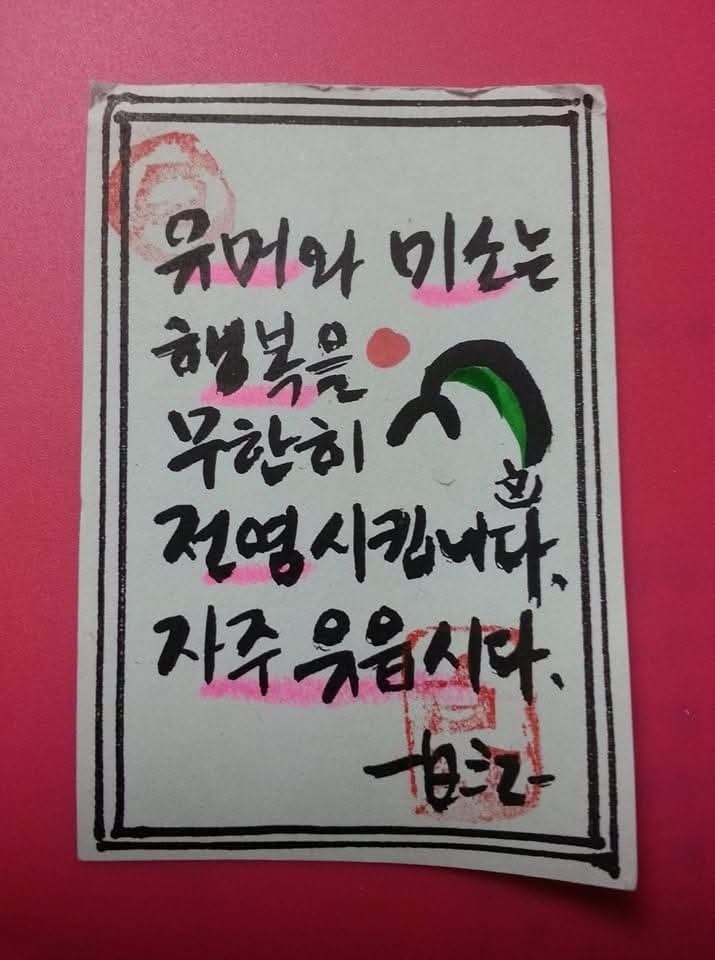 유머와 미소는
행복을
무한히
전염시킵니다.
자주 웃읍시다.